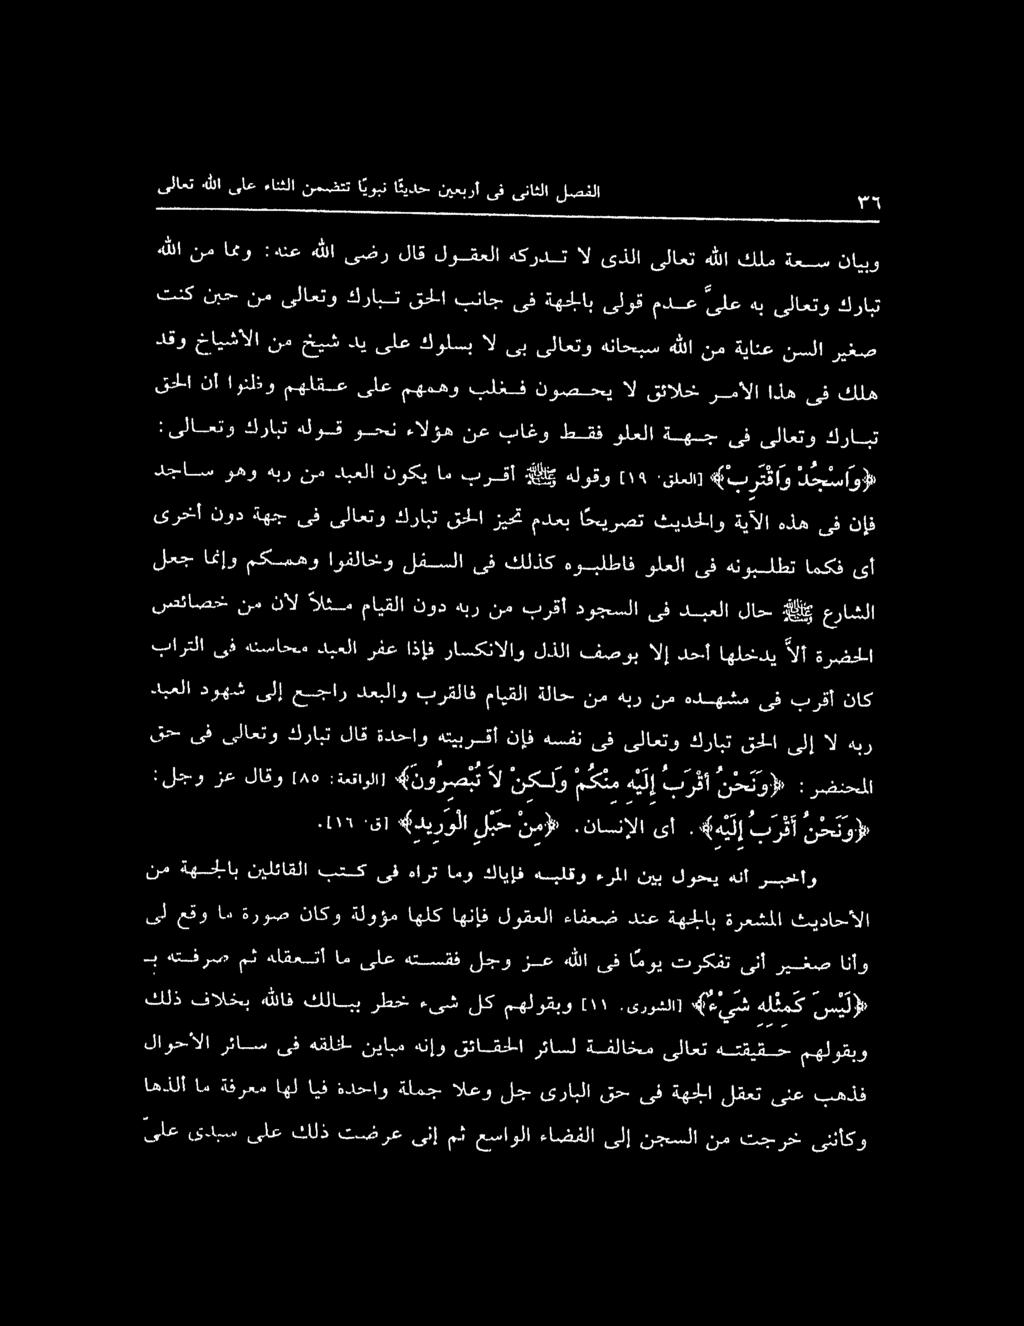 ٣٦ الفصل الثانى فى أربعين حديثًا نبويًا تتضمن الثناء على الله تعالى
وبيان سعة ملك الله تعالى الذى لا تدركه العقول قال رضى الله عنه: ومما من الله
تبارك وتعالى به علىَّ عدم قولى بالجهة فى جانب الحق تبارك وتعالى من حين كنت
صغير السن عناية من الله سبحانه وتعالى بى لا بسلوك على يد شيخ من الأشياخ وقد
هلك فى هذا الأمر خلائق لا يحصون فغلب وهمهم على عقلهم وظنوا أن الحق
تبارك وتعالى فى جهة العلو فقط وغاب عن هؤلاء نحو قوله تبارك وتعالى:
﴿وَاسْجُدْ وَاقْتَرِبْ﴾ [العلق: ١٩] وقوله ﷺ أقرب ما يكون العبد من ربه وهو ساجد
فإن فى هذه الآية والحديث تصريحًا بعدم تحيز الحق تبارك وتعالى فى جهة دون أخرى
أى فكما تطلبونه فى العلو فاطلبوه كذلك فى السفل وخالفوا وهمكم وإنما جعل
الشارع ﷺ حال العبد فى السجود أقرب من ربه دون القيام مثلاً لأن من خصائص
الحضرة ألاَّ يدخلها أحد إلا بوصف الذل والانكسار فإذا عفر العبد محاسنه فى التراب
كان أقرب فى مشهده من ربه من حالة القيام فالقرب والبعد راجع إلى شهود العبد
ربه لا إلى الحق تبارك وتعالى فى نفسه فإن أقربيته واحدة قال تبارك وتعالى فى حق
المحتضر: ﴿وَنَحْنُ أَقْرَبُ إِلَيْهِ مِنكُمْ وَلَـكِنْ لاَّ تُبْصِرُونَ﴾ [الواقعة: ٨٥] وقال عز وجل:
﴿وَنَحْنُ أَقْرَبُ إِلَيْهِ﴾. أى الإنسان. ﴿مِنْ حَبْلِ الْوَرِيدِ﴾ [ق: ١٦].
وأخبر أنه يحول بين المرء وقلبه فإياك وما تراه فى كتب القائلين بالجهة من
الأحاديث المشعرة بالجهة عند ضعفاء العقول فإنها كلها مؤولة وكان صورة ما وقع لى
وأنا صغير أنى تفكرت يومًا فى الله عز وجل فقسته على ما أتعقله ثم صرفته بـ
﴿لَيْسَ كَمِثْلِهِ شَيْءٌ﴾ [الشورى: ١١] وبقولهم كل شىء خطر ببالك فالله بخلاف ذلك
وبقولهم حقيقته تعالى مخالفة لسائر الحقائق وإنه مباين لخلقه فى سائر الأحوال
فذهب عنى تعقل الجهة فى حق البارى جل وعلا جملة واحدة فيا لها معرفة ما ألذها
وكأننى خرجت من السجن إلى الفضاء الواسع ثم إنى عرضت ذلك على سيدى علىّ